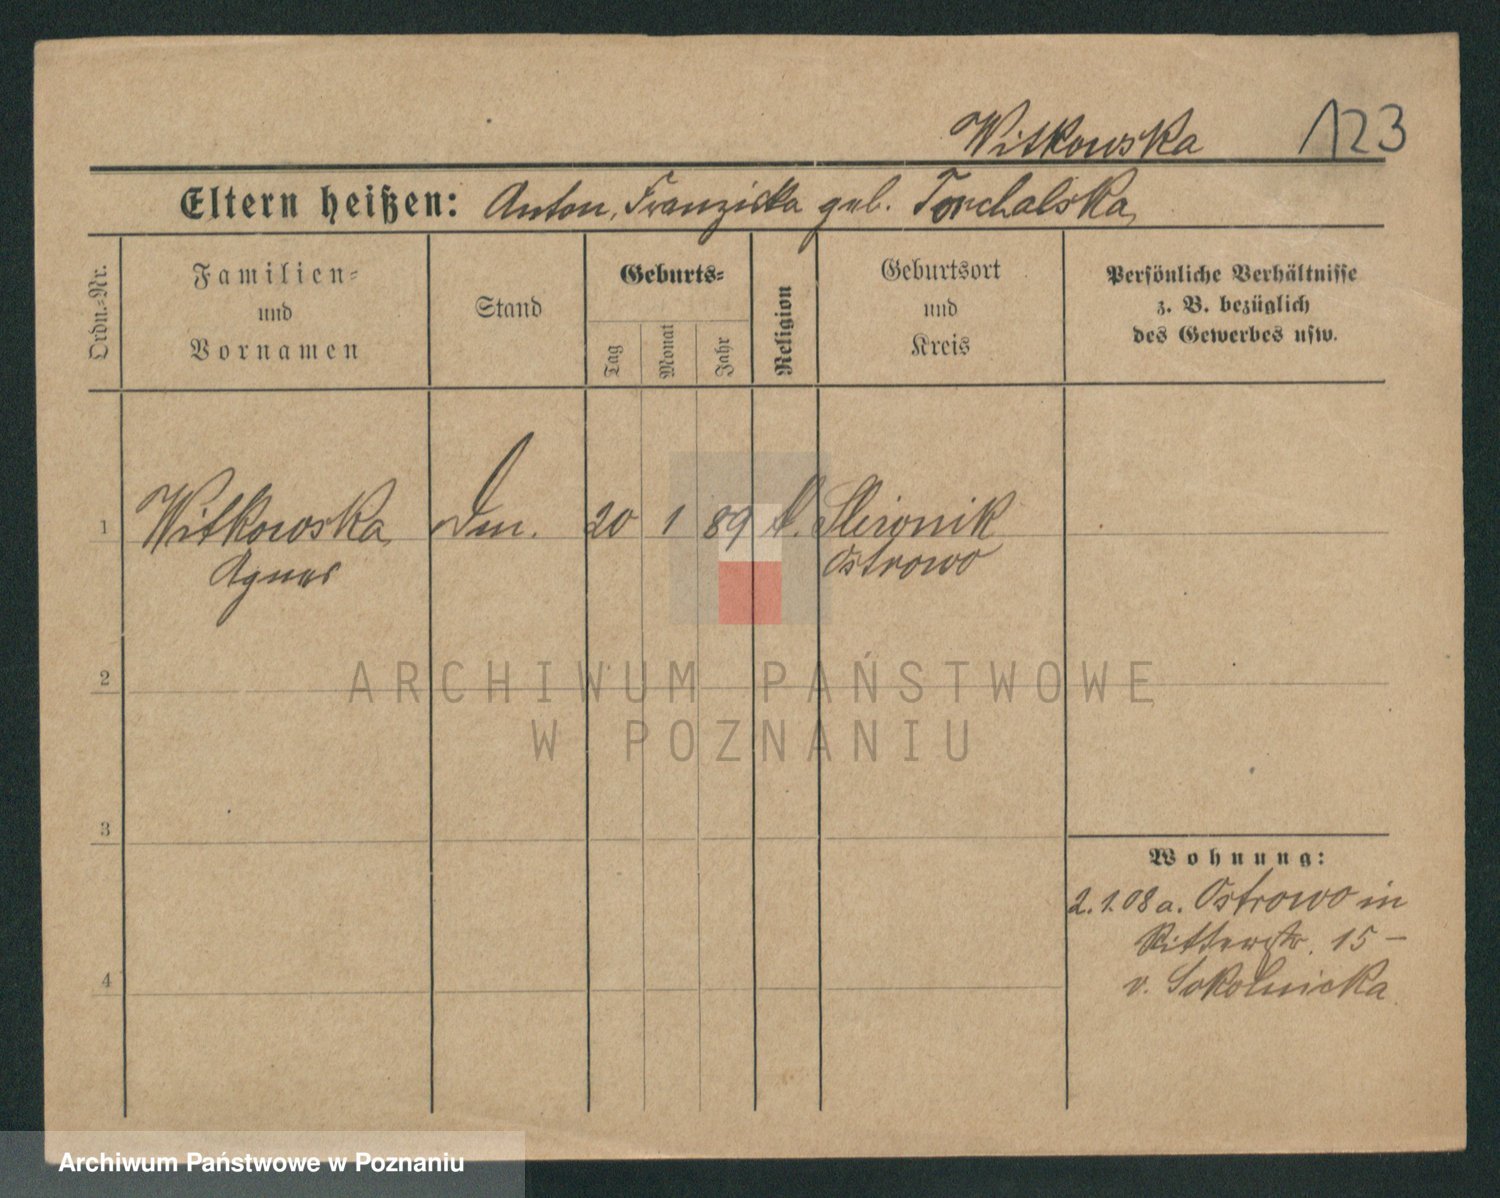 Witkowska 123
Eltern heißen: Anton, Franziska geb. Torchalska,
Ordn.-Nr.
Familien-
und
Vornamen
Stand
Geburts-
Tag
Monat
Jahr
Religion
Geburtsort
und
Kreis
Persönliche Verhältnisse
z. B. bezüglich
des Gewerbes usw.
1 Witkowska, 20 1 89 k. Slivonik
Agnes Ostrowo
2
3
4
Wohnung:
2.1.08 a. Ostrowo in
Ritterstr. 15 –
v. Sokolnicka
ARCHIWUM PAŃSTWOWE
W POZNANIU
Archiwum Państwowe w Poznaniu